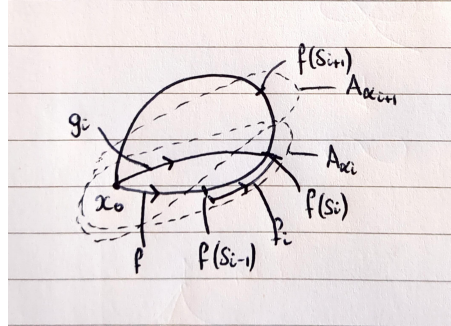 f(Si+1)
Aαi+1
gi
Aαi
x₀
f(Si)
f
f(Si-1)
fi